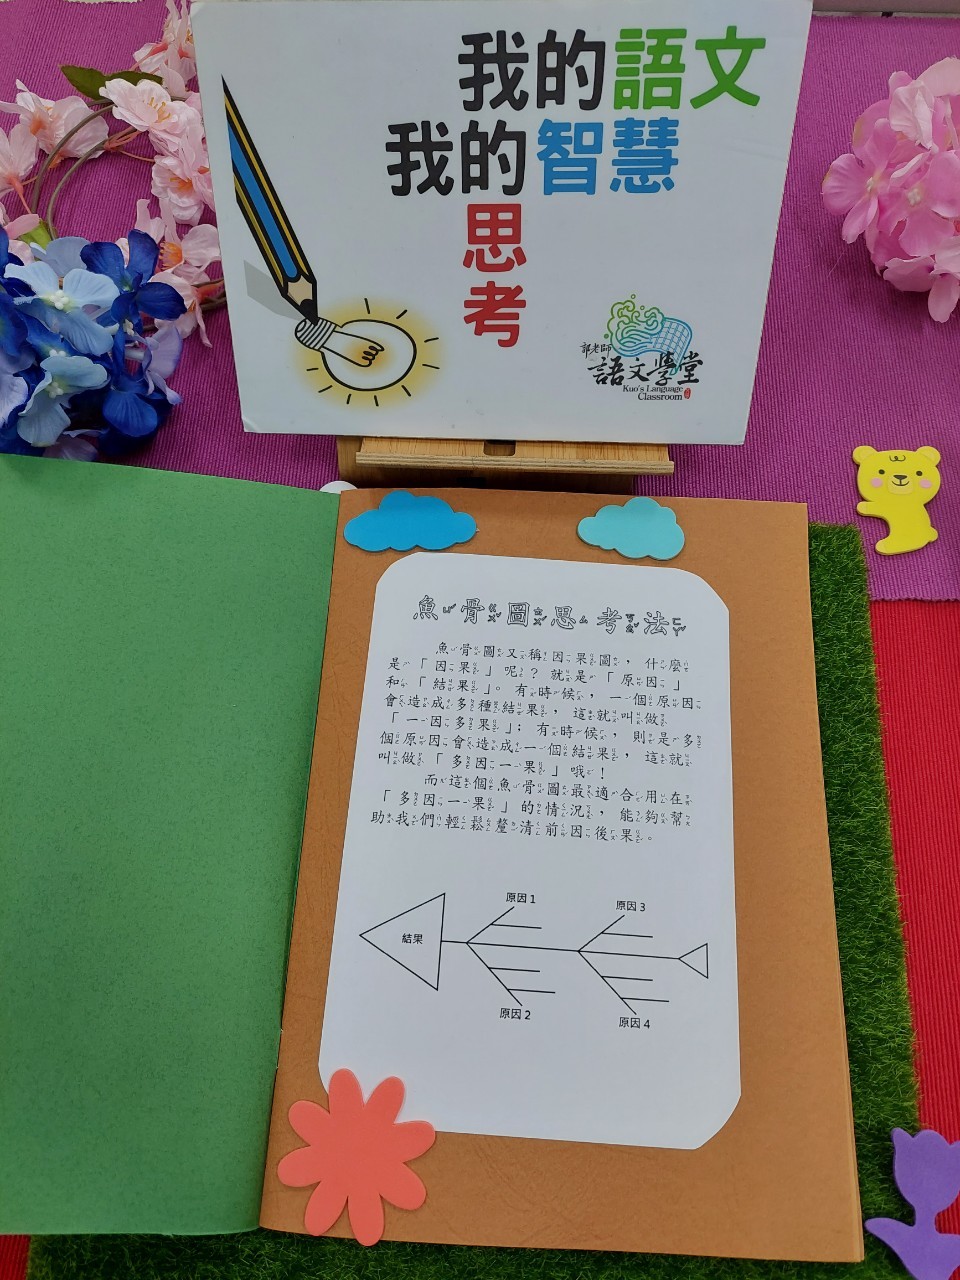 我的語文
我的智慧
思
考
郭老師
語文學堂
Kuo's Language
Classroom
魚骨圖思考法
魚骨圖又稱因果圖，什麼
是「因果」呢？就是「原因」
和「結果」。有時候，一個原因
會造成多種結果，這就叫做
「一因多果」；有時候，則是多
個原因會造成一個結果，這就
叫做「多因一果」哦！
而這個魚骨圖最適合用在
「多因一果」的情況，能夠幫
助我們輕鬆釐清前因後果。
原因 1
原因 3
結果
原因 2
原因 4